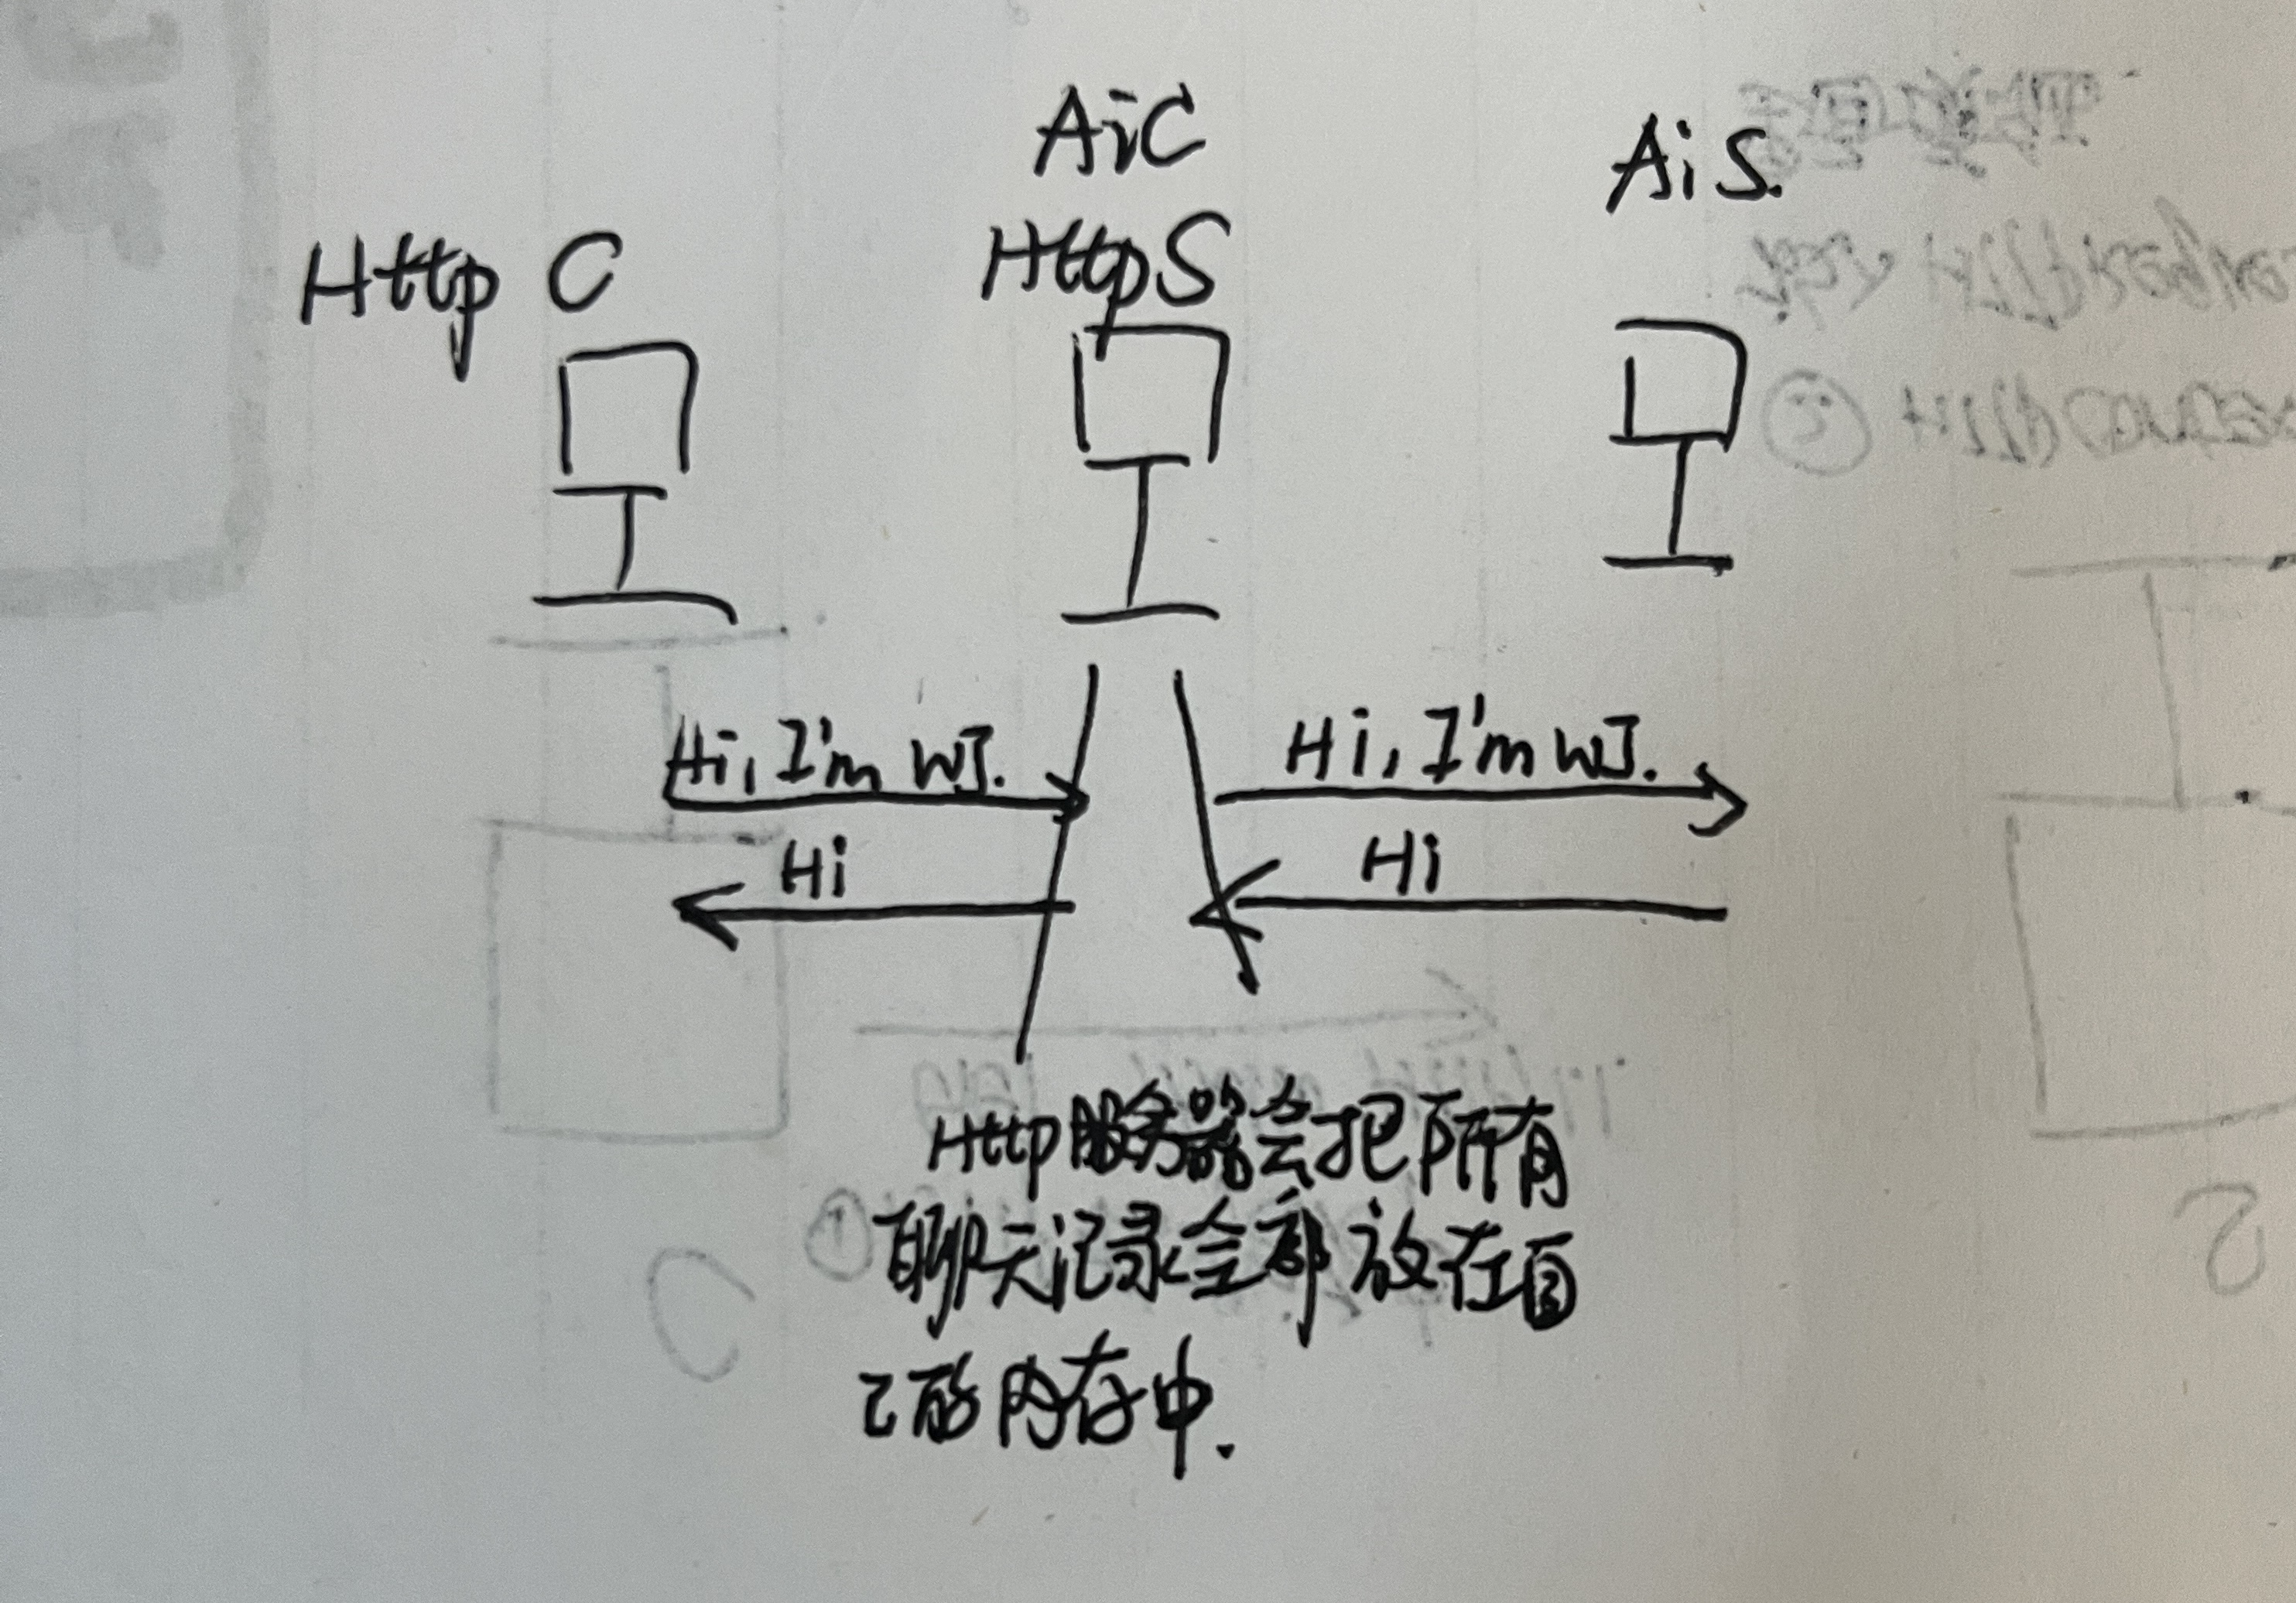 AiC
AiS.
Http C
HttpS
Hi, I'm WJ.
Hi, I'm WJ.
Hi
Hi
Http服务器会把所有
聊天记录全部放在自
己的内存中.